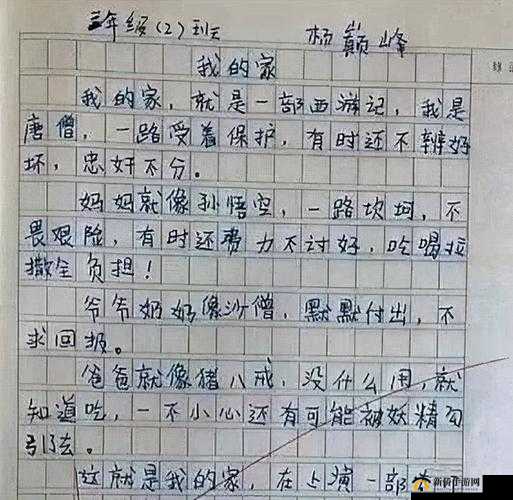 三年级(2)班 杨巅峰
我的家
我的家，就是一部西游记，我是
唐僧，一路受着保护，有时还不辨好
坏，忠奸不分。
妈妈就像孙悟空，一路坎坷，不
畏艰险，有时还费力不讨好，吃喝拉
撒全负担！
爷爷奶奶像沙僧，默默付出，不
求回报。
爸爸就像猪八戒，没什么用，就
知道吃，一不小心还有可能被妖精勾
引去。
这就是我的家，在上演一部
新侨手游网